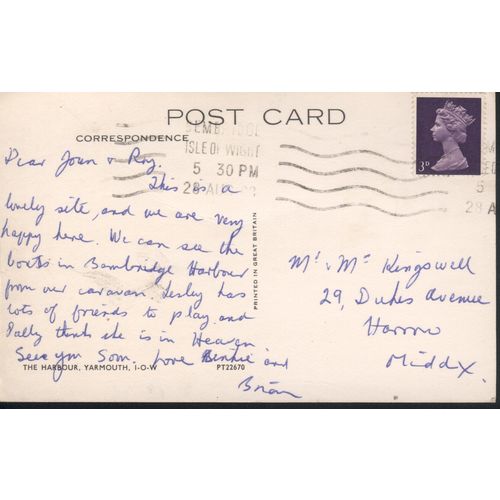 POST CARD
CORRESPONDENCE
ISLE OF WIGHT
5 30 PM
28 AU
5
28 A
3D
Dear Joan & Roy.
This is a
lovely site, and we are very
happy here. We can see the
boats in Bembridge Harbour
from our caravan. Lesley has
lots of friends to play and
Sally thinks she is in Heaven
See you Soon. Love and
Brian
PRINTED IN GREAT BRITAIN
Mr & Mrs Kingswell
29, Dukes Avenue
Harrow
Middx.
THE HARBOUR, YARMOUTH, I-O-W PT22670